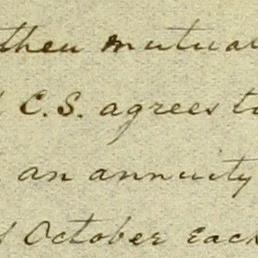 then mutual
C.S. agrees to
an annuity
October each